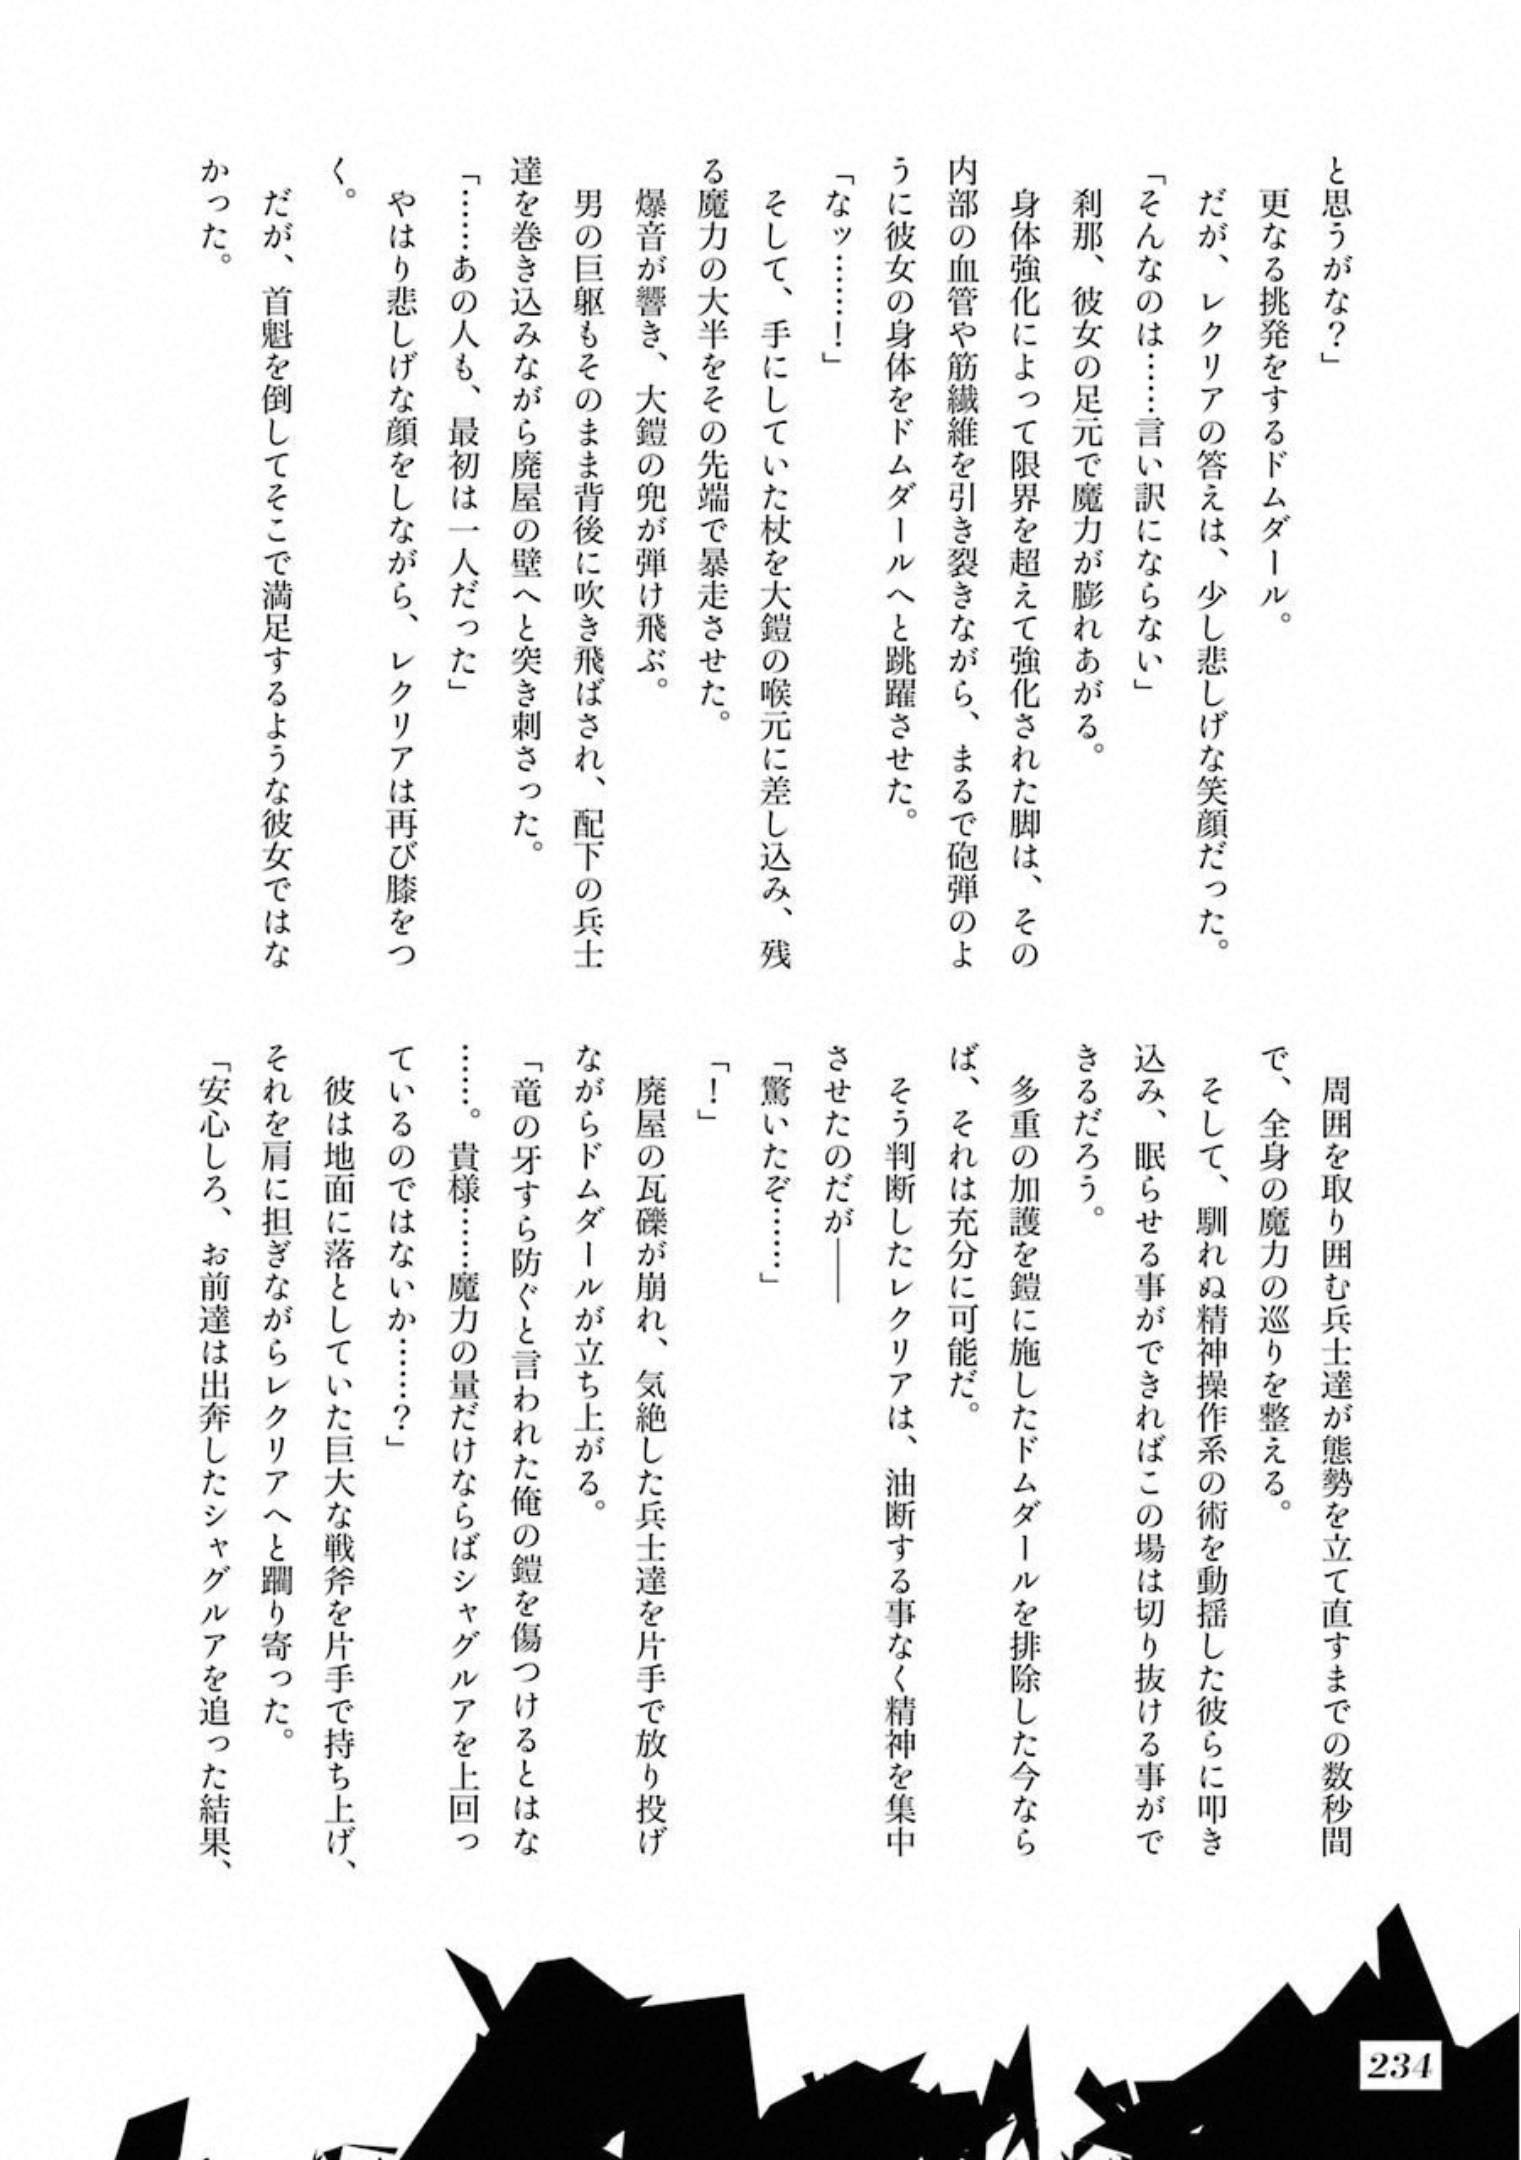 と思うがな？」
更なる挑発をするドムダール。
だが、レクリアの答えは、少し悲しげな笑顔だった。
「そんなのは……言い訳にならない」
刹那、彼女の足元で魔力が膨れあがる。
身体強化によって限界を超えて強化された脚は、その
内部の血管や筋繊維を引き裂きながら、まるで砲弾のよ
うに彼女の身体をドムダールへと跳躍させた。
「なッ……！」
そして、手にしていた杖を大鎧の喉元に差し込み、残
る魔力の大半をその先端で暴走させた。
爆音が響き、大鎧の兜が弾け飛ぶ。
男の巨躯もそのまま背後に吹き飛ばされ、配下の兵士
達を巻き込みながら廃屋の壁へと突き刺さった。
「……あの人も、最初は一人だった」
やはり悲しげな顔をしながら、レクリアは再び膝をつ
く。
だが、首魁を倒してそこで満足するような彼女ではな
かった。
周囲を取り囲む兵士達が態勢を立て直すまでの数秒間
で、全身の魔力の巡りを整える。
そして、馴れぬ精神操作系の術を動揺した彼らに叩き
込み、眠らせる事ができればこの場は切り抜ける事がで
きるだろう。
多重の加護を鎧に施したドムダールを排除した今なら
ば、それは充分に可能だ。
そう判断したレクリアは、油断する事なく精神を集中
させたのだが――
「驚いたぞ……」
「！」
廃屋の瓦礫が崩れ、気絶した兵士達を片手で放り投げ
ながらドムダールが立ち上がる。
「竜の牙すら防ぐと言われた俺の鎧を傷つけるとはな
……。貴様……魔力の量だけならばシャグルアを上回っ
ているのではないか……？」
彼は地面に落としていた巨大な戦斧を片手で持ち上げ、
それを肩に担ぎながらレクリアへと躙り寄った。
「安心しろ、お前達は出奔したシャグルアを追った結果、
234